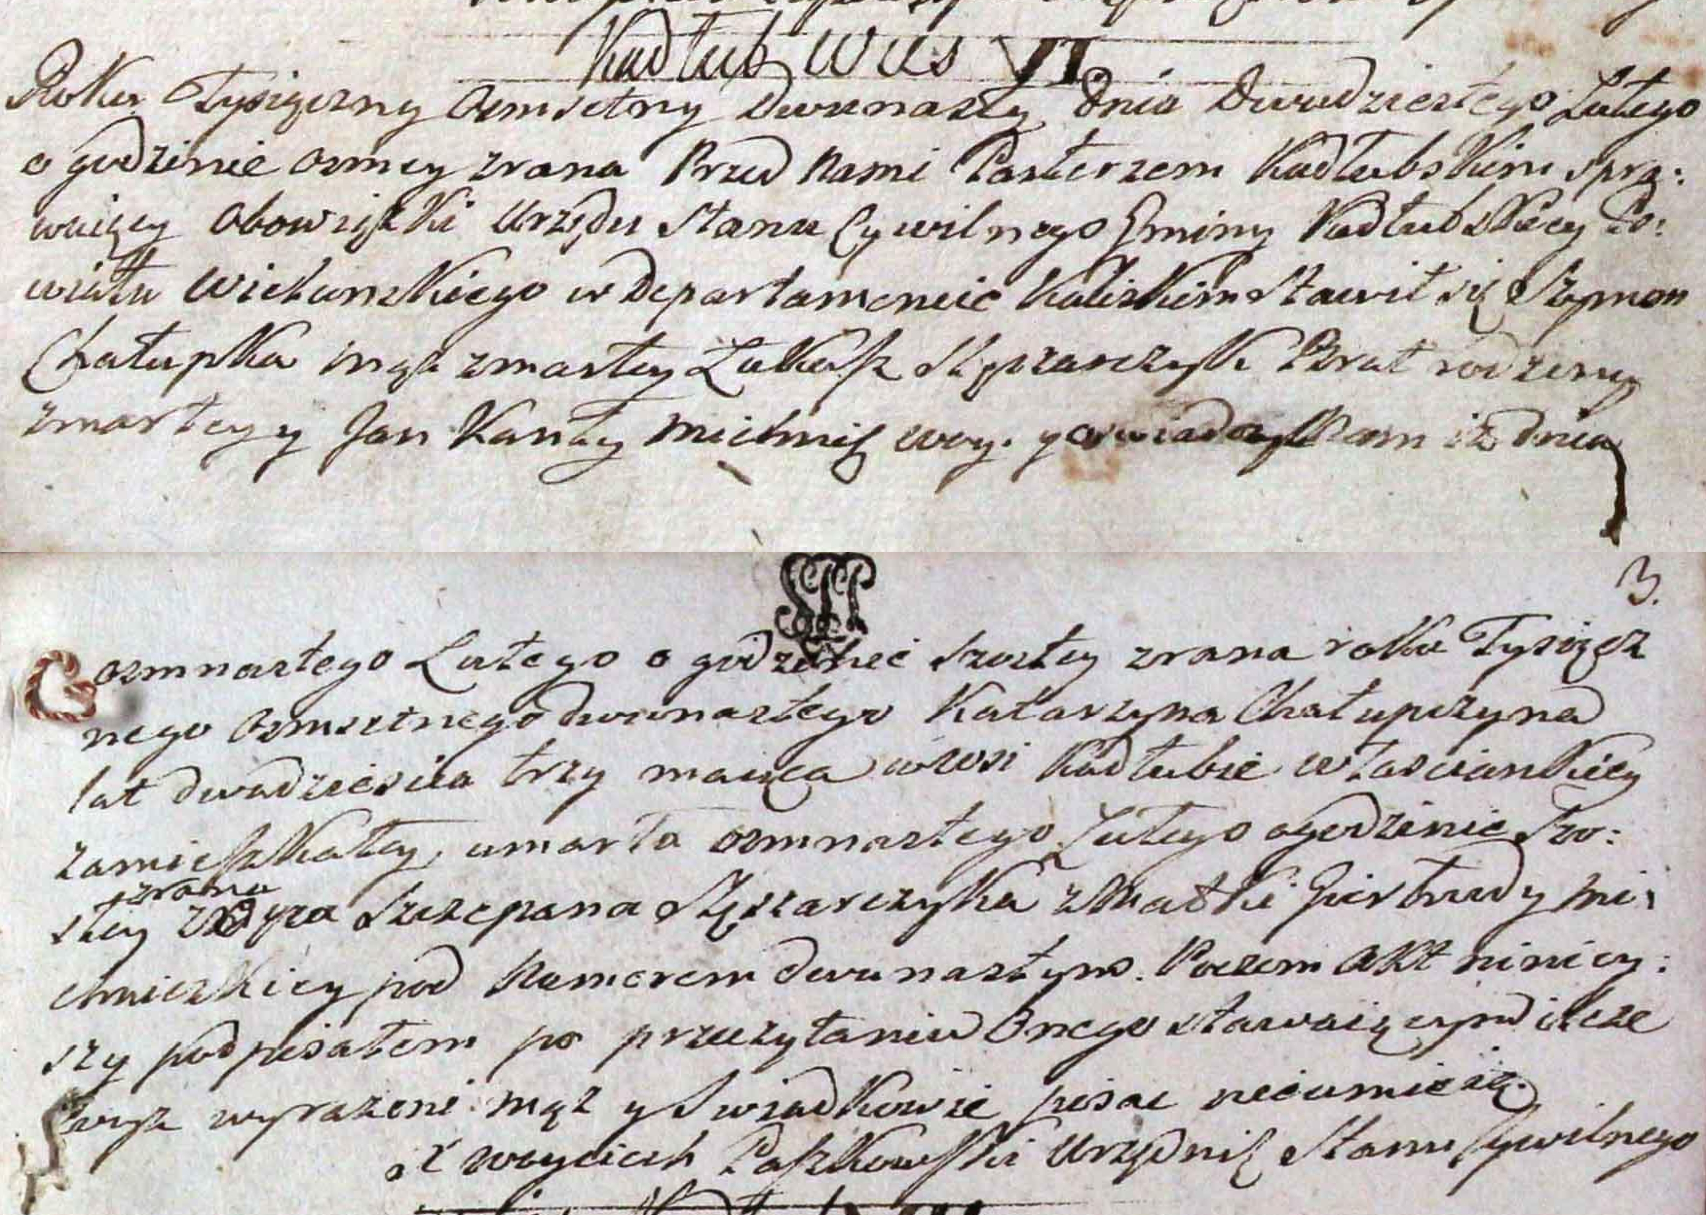 Kadłub Wies VI
Roku Tysiączny osmsetny Dwunasty dnia Dwudziestego Lutego
o godzinie osmey zrana Przed Nami Pasterzem Kadłubskim spra:
wuiący Obowiązki Urzędu Stanu Cywilnego Gminy Kadłubskiey Po:
wiatu Wieluńskiego w Departamencie Kaliskim stawił się Szymon
Chałupka mąż zmarłey Łukasz Brat rodzony
zmarłey y Jan Kanty Michnik woy. y Nam iż dnia
3.
osmnastego Lutego o godzinie szostey zrana roku Tysiącz
nego osmsetnego dwunastego Katarzyna Chałupczyna
lat dwadziescia trzy maiąca w wsi Kadłubie własciankiey
zamieszkałey, umarła osmnastego Lutego o godzinie szo:
zrana
stey z Oyca Szczepana z Matki Giertrudy Mi:
chnickiey pod Numerem dwunastym. Poczem Akt niniey:
szy podpisałem po przeczytaniu Onego stawaiącym ilcze
zwyz wyrazeni mąz y Swiadkowie pisac nieumieią.
X Woyciech Paszkowski Urzędnik Stanu Cywilnego